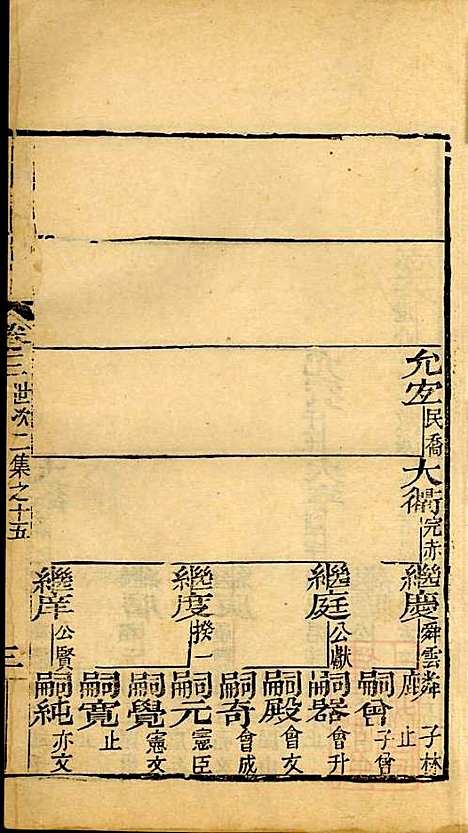 允安民喬
大衢完赤
繼慶舜雲
繼庭公獻
繼度揆一
繼庠公賢
麟子林止
嗣會子會
嗣器會升
嗣殿會友
嗣奇會成
嗣元憲臣
嗣覺憲文
嗣寬止
嗣純亦文
卷二世次二集之十五
三